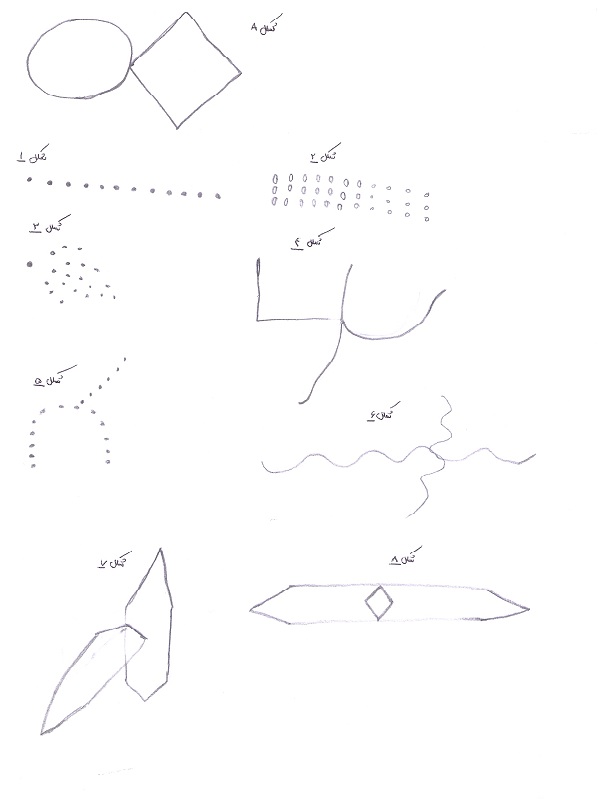 شکل A
شکل ۱
شکل ۲
شکل ۳
شکل ۴
شکل ۵
شکل ۶
شکل ۷
شکل ۸